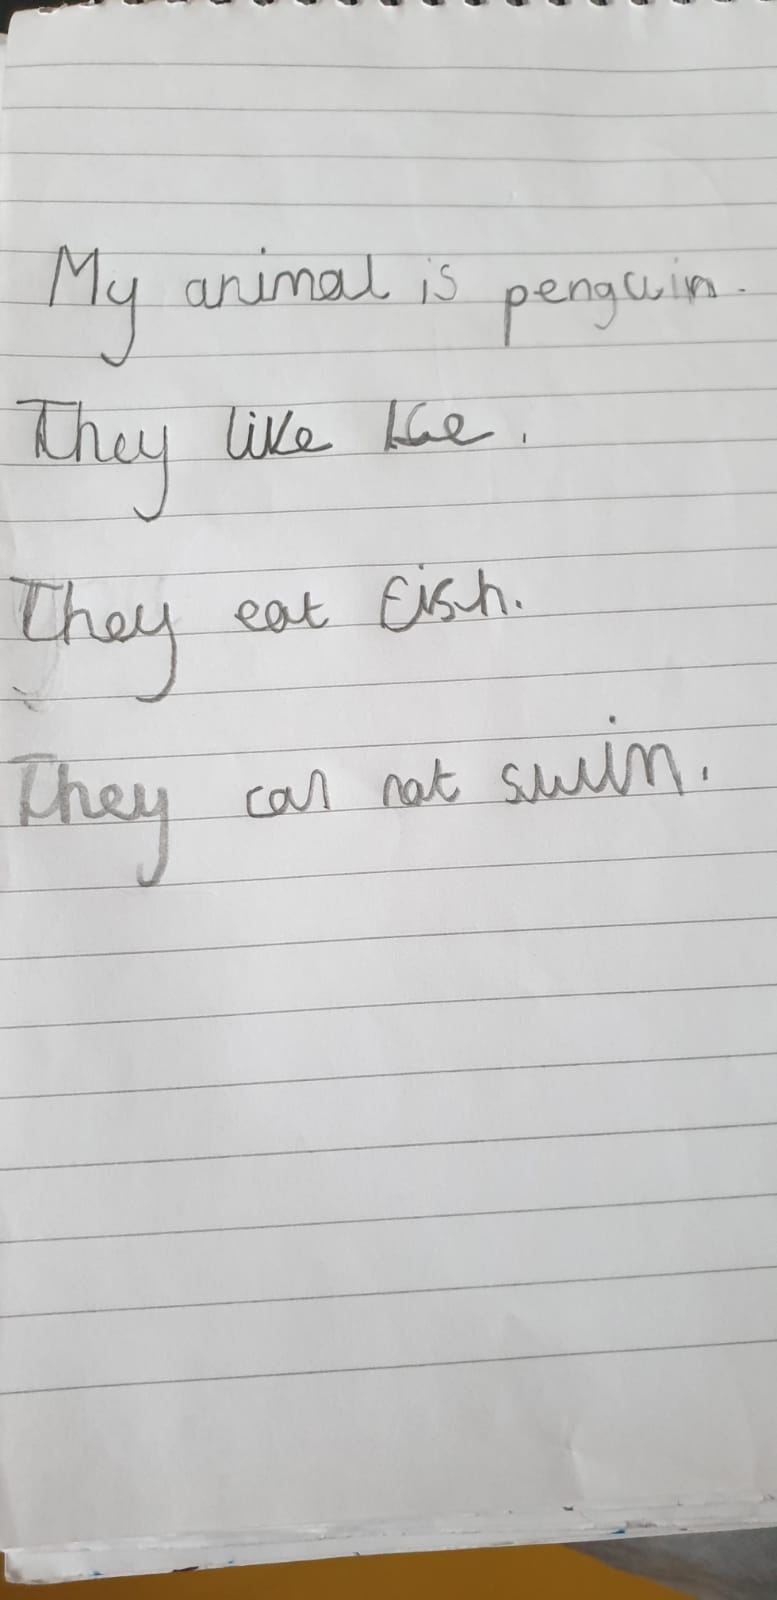 My animal is penguin.
They like Ice.
They eat fish.
They can not swim.